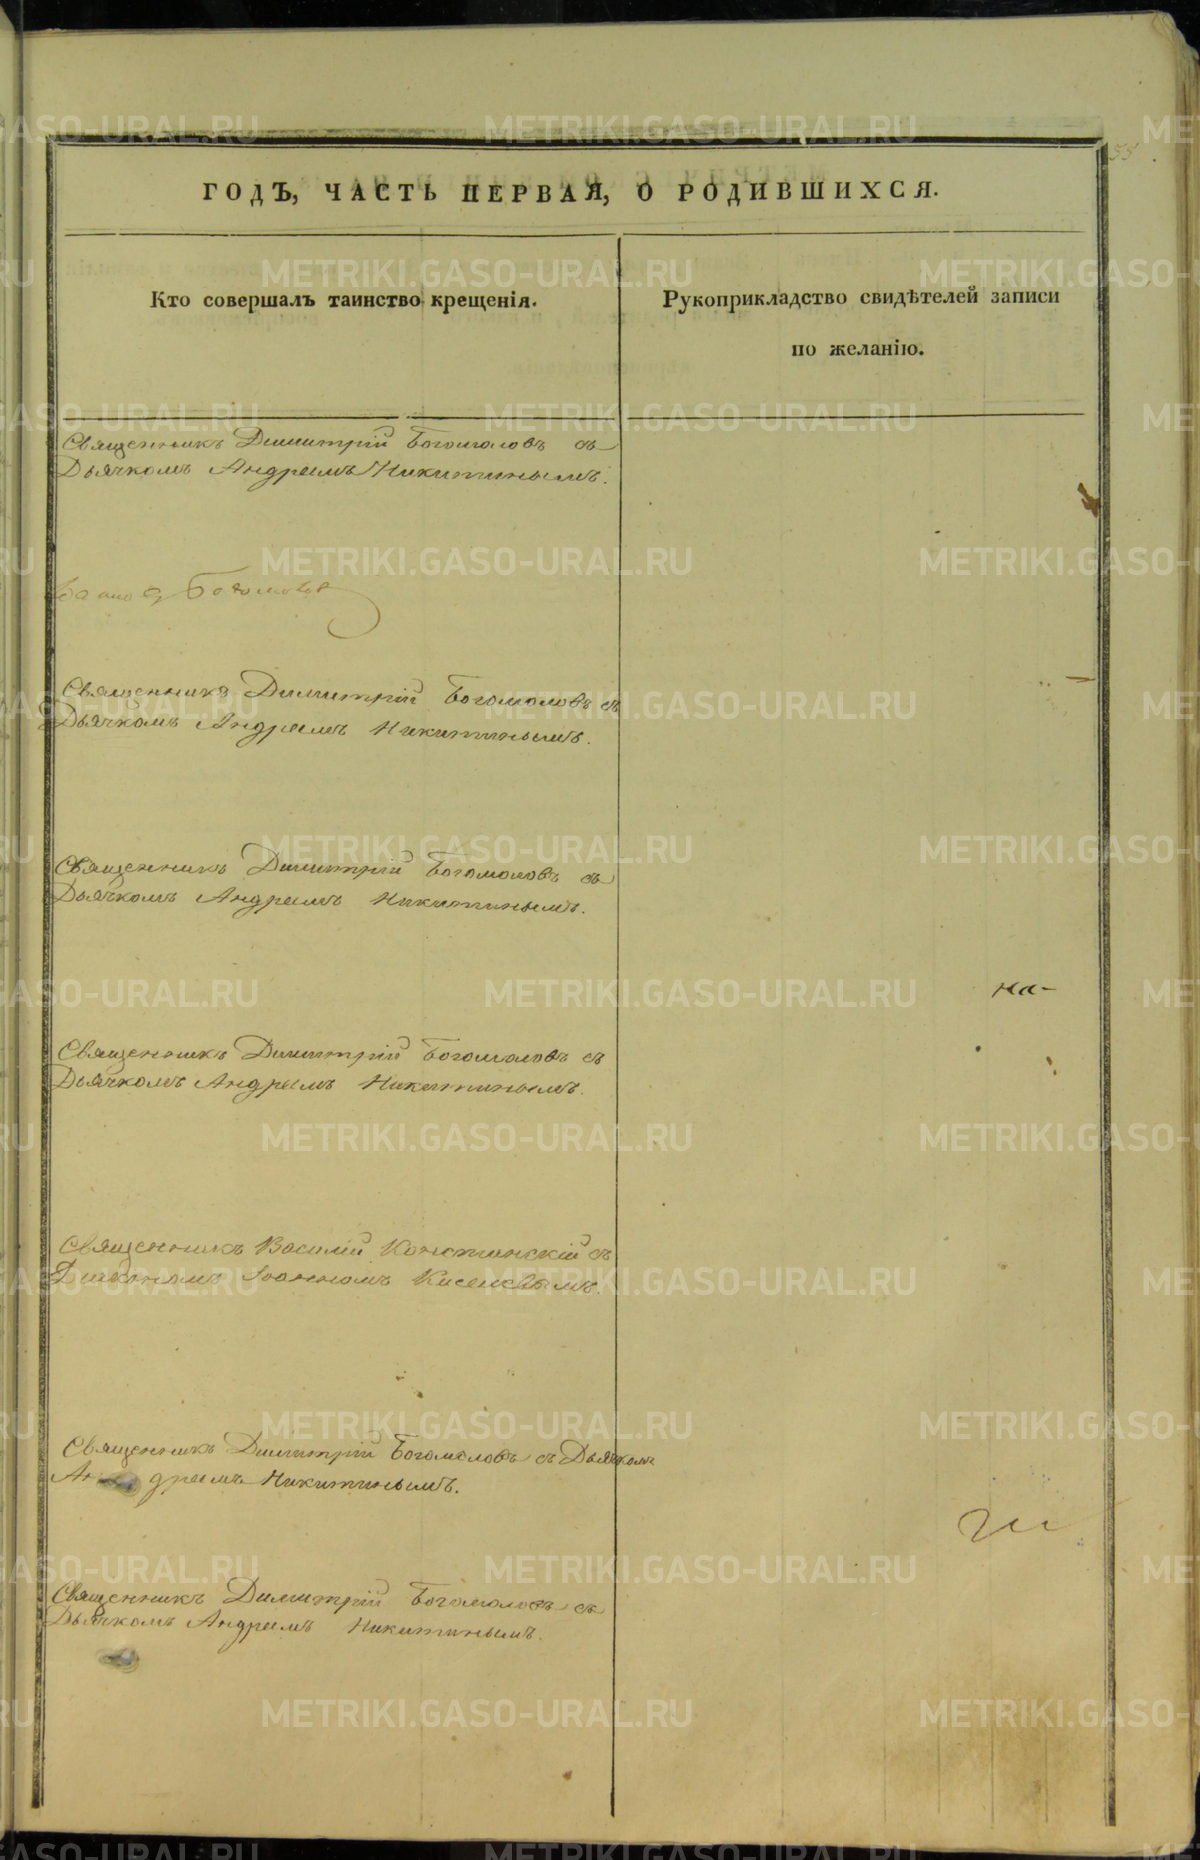 55
ГОДЪ, ЧАСТЬ ПЕРВАЯ, О РОДИВШИХСЯ.
Кто совершалъ таинство крещенія.
Рукоприкладство свидѣтелей записи
по желанію.
Священникъ Димитрій Богомоловъ съ
Дьячкомъ Андреемъ Никитинымъ.
Богомолов
Священникъ Димитрій Богомоловъ съ
Дьячкомъ Андреемъ Никитинымъ.
Священникъ Димитрій Богомоловъ съ
Дьячкомъ Андреемъ Никитинымъ.
на-
Священникъ Димитрій Богомоловъ съ
Дьячкомъ Андреемъ Никитинымъ.
Священникъ Василій съ
Іоанномъ Киселевымъ.
Священникъ Димитрій Богомоловъ съ Дьячкомъ
Андреемъ Никитинымъ.
Священникъ Димитрій Богомоловъ съ
Дьячкомъ Андреемъ Никитинымъ.
METRIKI.GASO-URAL.RU